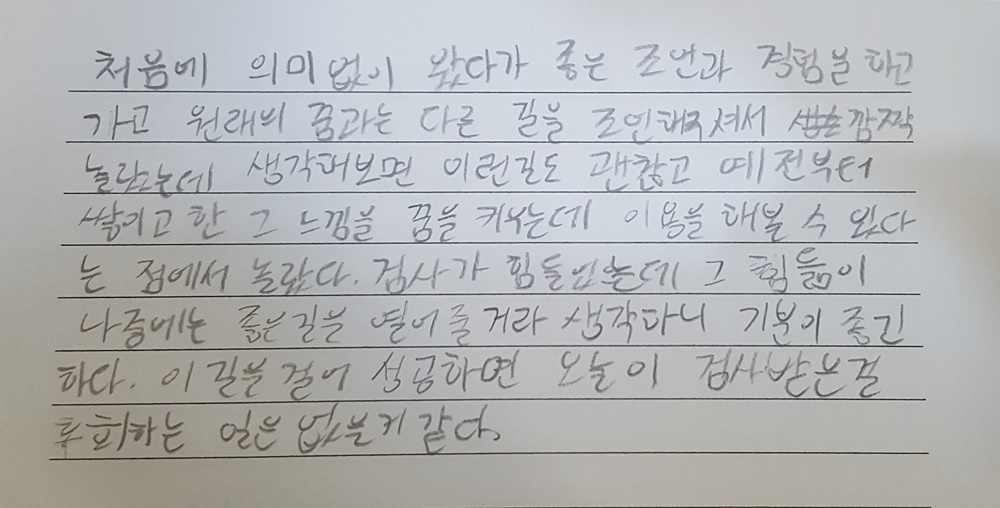 처음에 의미없이 왔다가 좋은 조언과 경험을 하고
가고 원래의 꿈과는 다른 길을 조언해주셔서 깜짝
놀랐는데 생각해보면 이런길도 괜찮고 예전부터
쌓이고 한 그 느낌을 꿈을 키우는데 이용을 해볼 수 있다
는 점에서 놀랐다. 검사가 힘들었는데 그 힘듦이
나중에는 좋은길을 열어줄거라 생각하니 기분이 좋긴
하다. 이 길을 걸어 성공하면 오늘이 검사받은걸
후회하는 일은 없을게 같다.